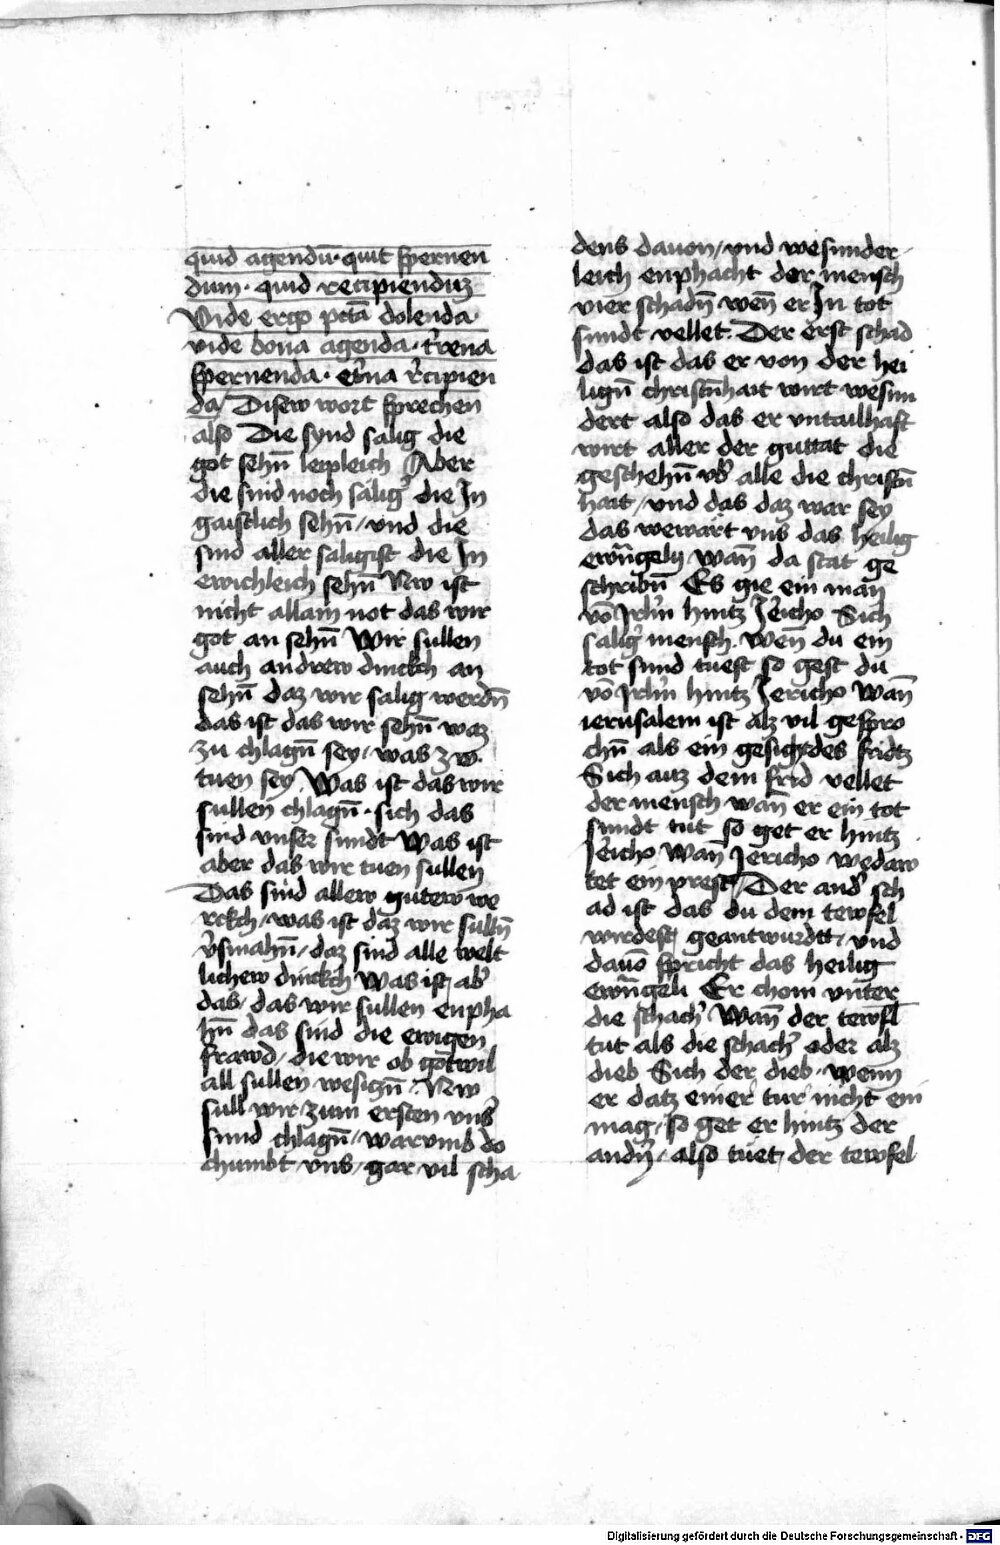 quid agendū · quit spernen
dum · quid recipienduz
Vide ergo pctā dolenda
vide bona agenda · t'rena
spernenda · et'na r'cipien
da / Disew wort sprechen
also Die synd salig die
got sehn̄ leipleich Aber
die sind noch sälig' die In
gaistlich sehn̄ / und die
sind aller saligist die In
ewichleich sehn̄ Nw ist
nicht allain not das wir
got an sehn̄ Wir sullen
auch andrew dinckch an
sehn̄ daz wir salig werdn̄
das ist das wir sehn̄ waz
zu chlagn̄ sey / was zw
tuen sey / Was ist das wir
sullen chlagn̄ · sich das
sind vnser sundt Was ist
aber das wir tuen sullen
Das sind allew gutew we
rckch / was ist daz wir sulln̄
v'smahn̄ / daz sind alle welt
lichew dinckch Was ist ab'
das / das wir sullen enpha
hn̄ das sind die ewigen
frawd / die wir ob gotwil
all sullen wesiczn̄ · Nw
sull wir zum ersten vns'
sund chlagn̄ / warumb do
chumbt vns / gar vil scha
dens dauon / vnd wesunder
leich enphacht der mensch
vier schadn̄ wen̄ er In tot
sundt vellet · Der erst schad
das ist das er von der hei
lign̄ christn̄hait wirt wesun
dert also das er vntailhaft
wirt aller der guttat die
geschehn̄ vb' alle die christn̄
hait / vnd das daz war sey
das wewärt vns das heilig
ewn̄gely wan̄ da stat ge
schribn̄ Es gie ein man
vō Jrl'm hintz Je'icho Sich
salig' mensch · wen̄ du ein
tot sund tuest so gest du
vō Jrl'm hintz Jericho Wan̄
ierusalem ist alz vil gespro
chn̄ als ein gesicht des fridtz
Sich autz dem frid vellet
der mensch wan̄ er ein tot
sundt tut so get er hintz
Je'icho Wan̄ Jericho wedaw
tet ein prest / Der and' sch
ad ist das du dem tewfel
wirdest geantwurdtt / vnd
dauō spricht das heilig
ewn̄geli Er chom vnter
die schach' Wan̄ der tewfl
tut als die schach' oder alz
dieb Sich der dieb · wenn
er datz einer tur nicht ein
mag / so get er hintz der
andn̄ / also tuet der tewfel
Digitalisierung gefördert durch die Deutsche Forschungsgemeinschaft - DFG